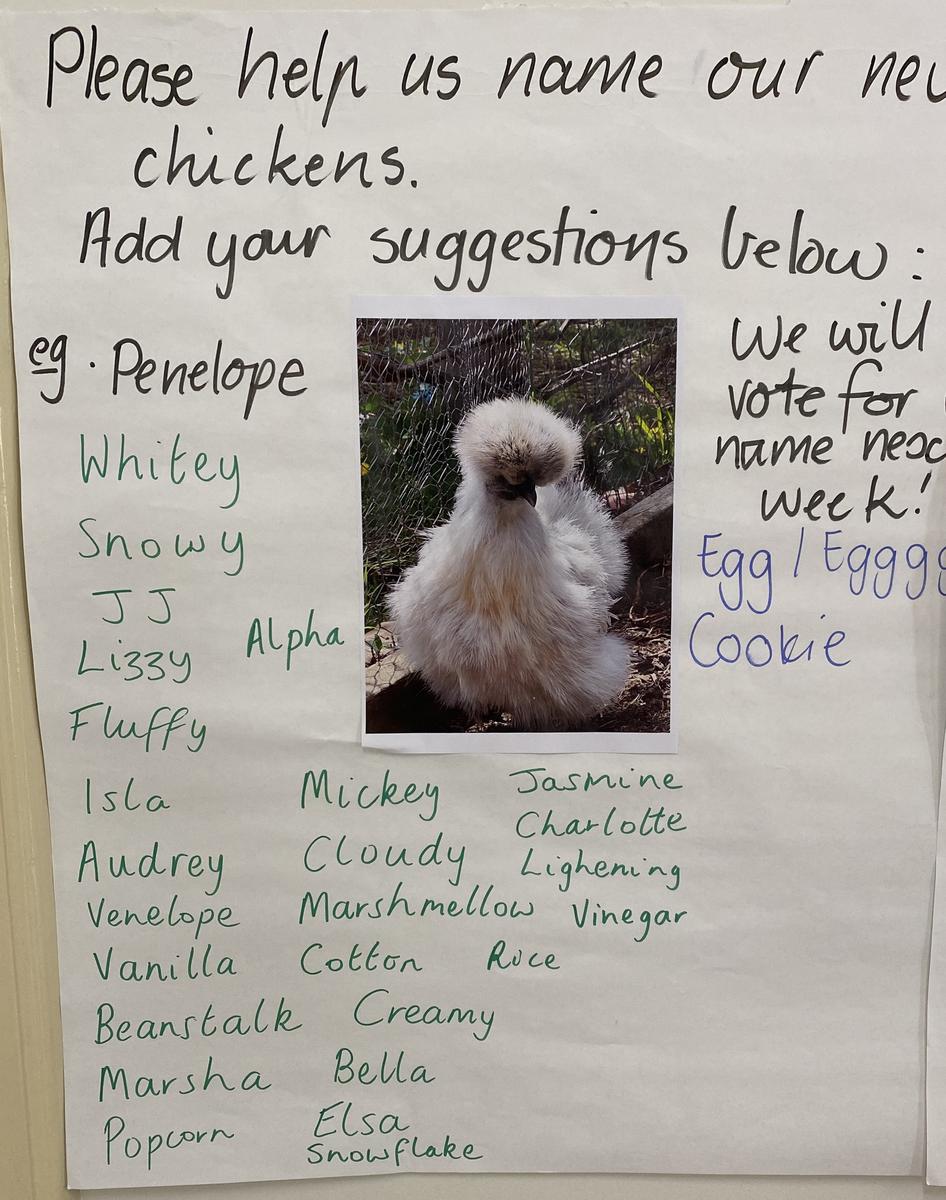 Please help us name our
chickens.
Add your suggestions below:
eg. Penelope
We will
vote for
name
week!
Whitey
Snowy
JJ
Lizzy
Alpha
Fluffy
Egg /
Cookie
Isla
Audrey
Venelope
Vanilla
Beanstalk
Marsha
Popcorn
Mickey
Cloudy
Marshmellow
Cotton
Creamy
Bella
Elsa
Snowflake
Jasmine
Charlotte
Lighening
Vinegar
Rice